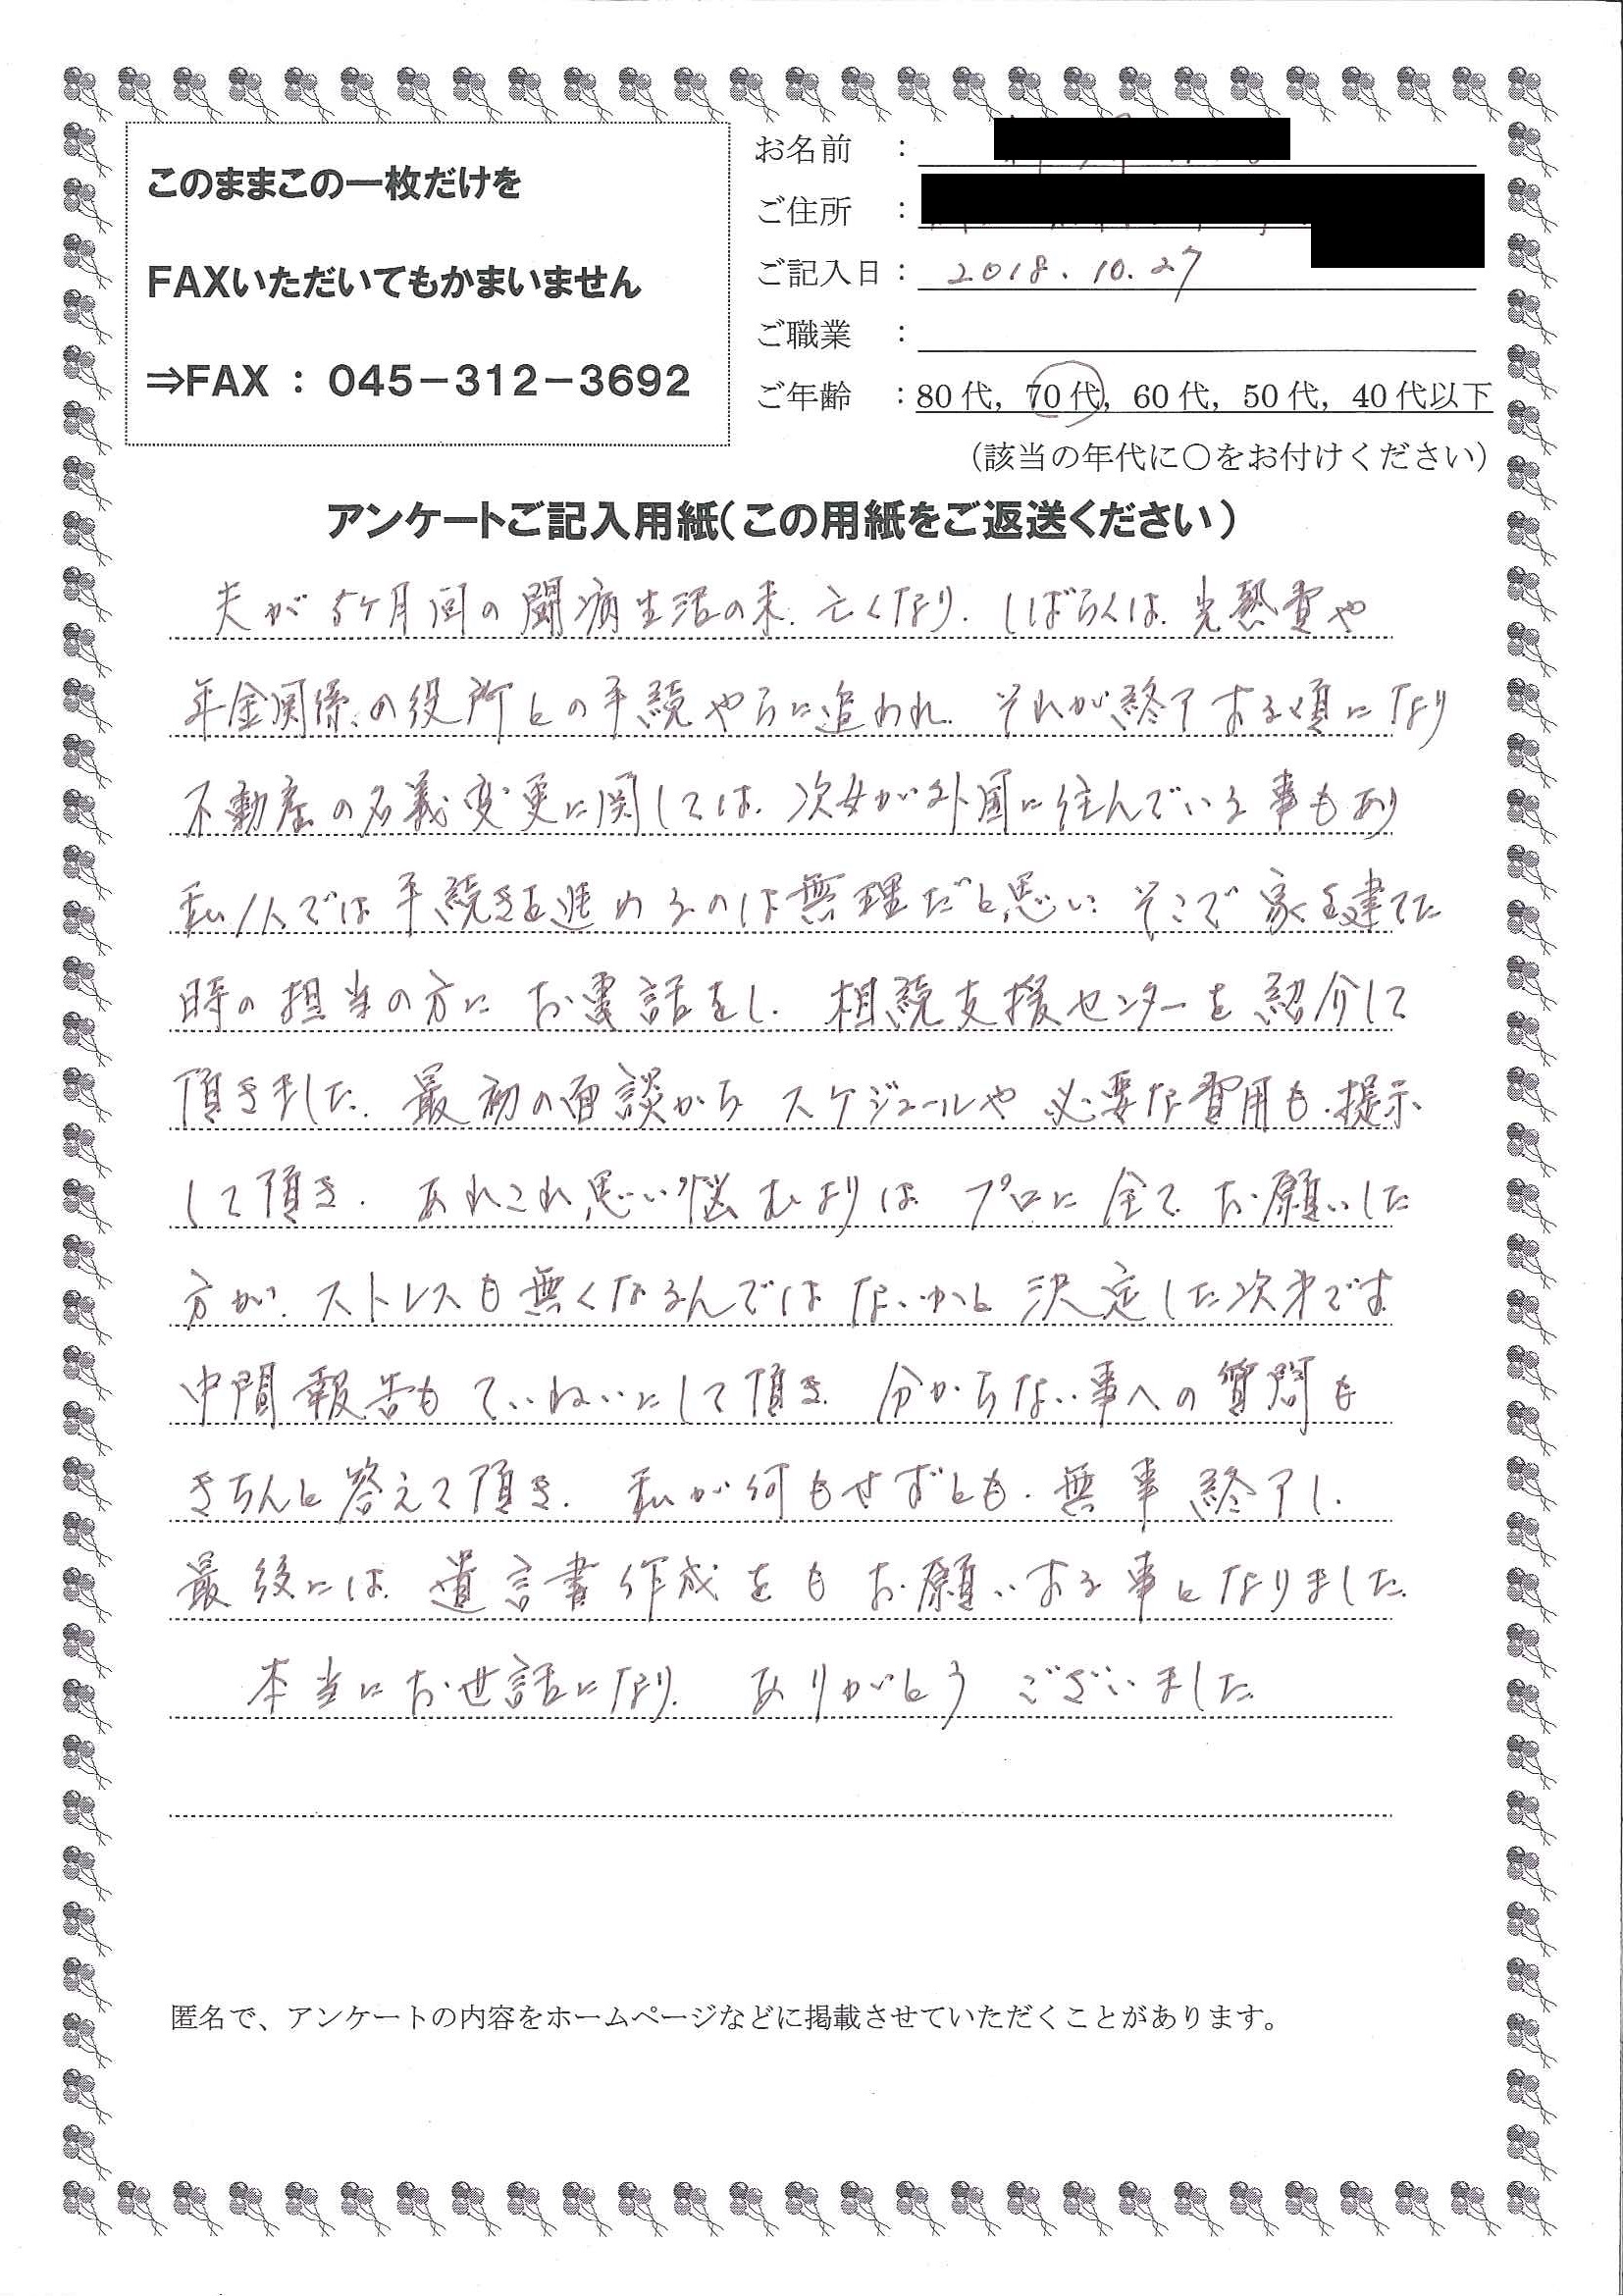 このままこの一枚だけを
FAXいただいてもかまいません
⇒FAX : 045-312-3692
お名前 :
ご住所 :
ご記入日: 2018.10.27
ご職業 :
ご年齢 :80代, 70代, 60代, 50代, 40代以下
(該当の年代に○をお付けください)
アンケートご記入用紙(この用紙をご返送ください)
夫が5ケ月間の闘病生活の末、亡くなり、しばらくは、光熱費や
年金関係の役所との手続やらに追われ、それが終了する頃になり
不動産の名義変更に関しては、次女が外国に住んでいる事もあり
私1人では手続きを進めるのは無理だと思い、そこで家を建てた
時の担当の方にお電話をし、相続支援センターを紹介して
頂きました。最初の面談からスケジュールや必要な費用も、提示
して頂き、あれこれ思い悩むよりは プロに全てお願いした
方が、ストレスも無くなるんではないかと決定した次才です
中間報告もていねいにして頂き、分からない事への質問も
きちんと答えて頂き、私が何もせずとも、無事終了し、
最後には、遺言書作成をもお願いする事となりました。
本当にお世話になり、ありがとうございました。
匿名で、アンケートの内容をホームページなどに掲載させていただくことがあります。